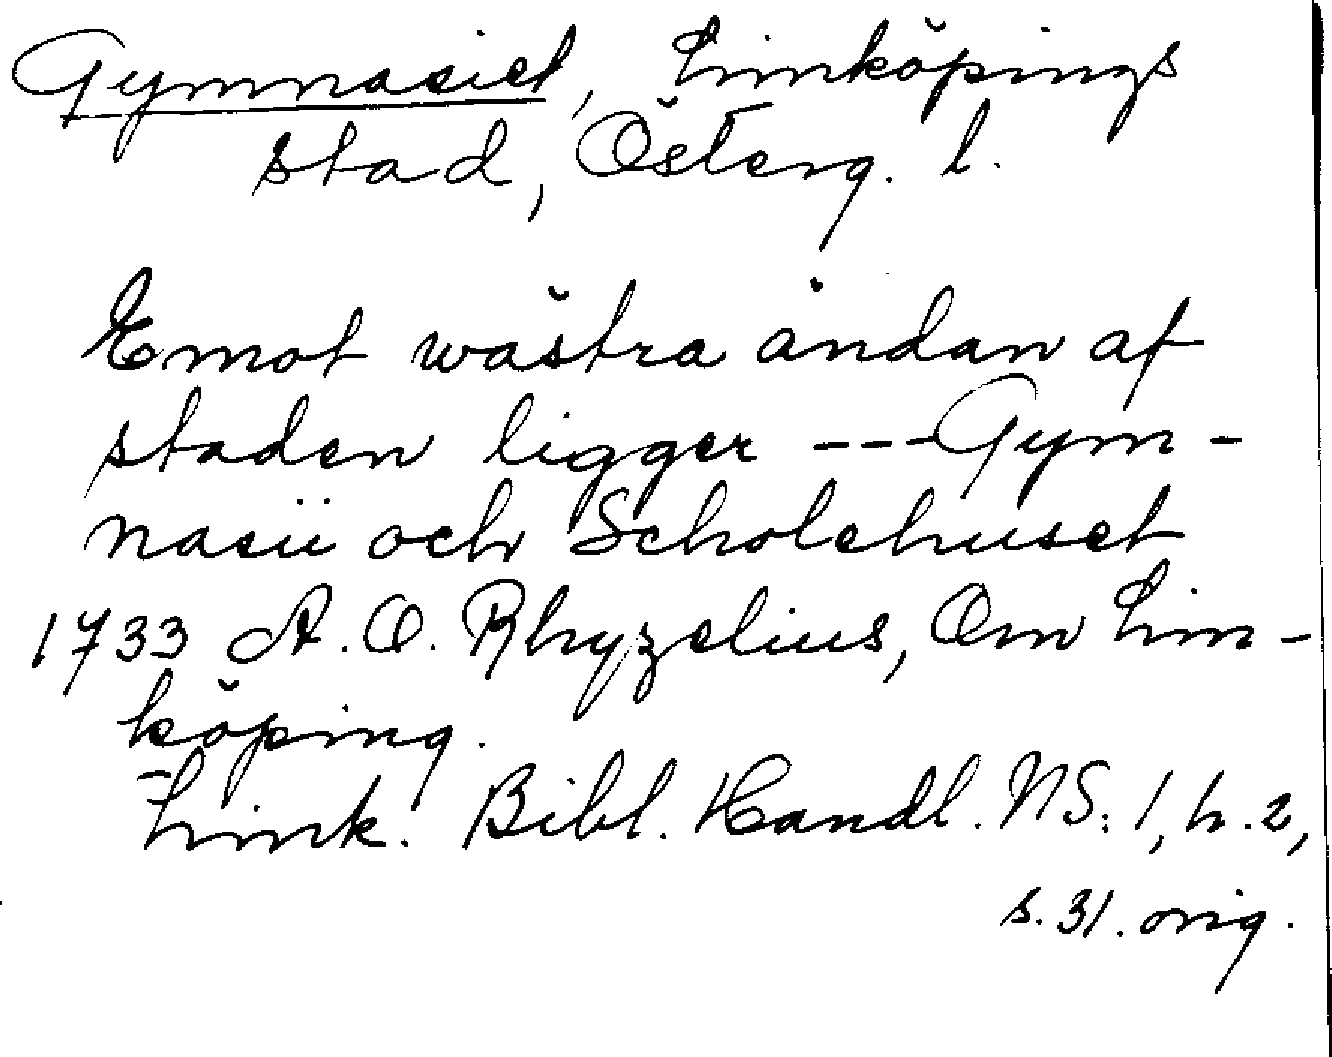 Gymnasiet, Linköpings
stad, Österg. l.
Emot wästra ändan af
staden ligger --- Gym-
nasii och Scholehuset
1733 A. O. Rhyzelius, Om Lin-
köping.
Link. Bibl. Handl. NS: 1, h. 2,
s. 31. orig.